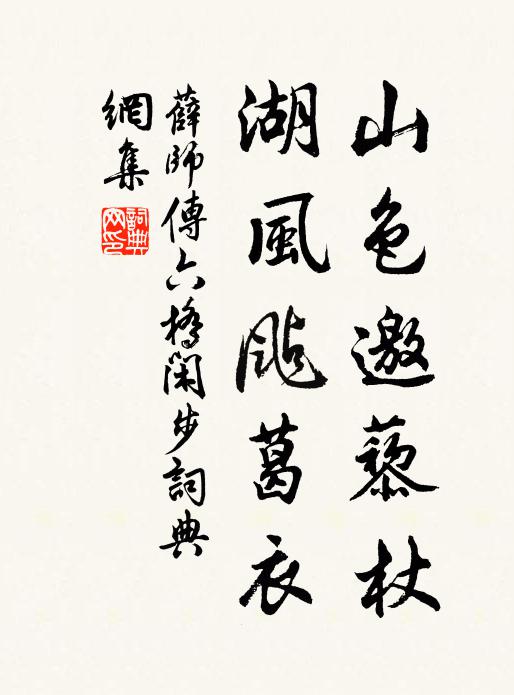 山色邀藜杖
湖風颭葛衣
薛師傅六橋閑步詞典
網集
詞典網印